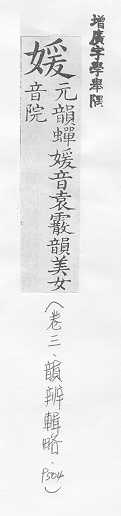 增廣字學舉隅
媛
元韻蟬媛音袁霰韻美女
音院
（卷三、韻辨輯略．P504）